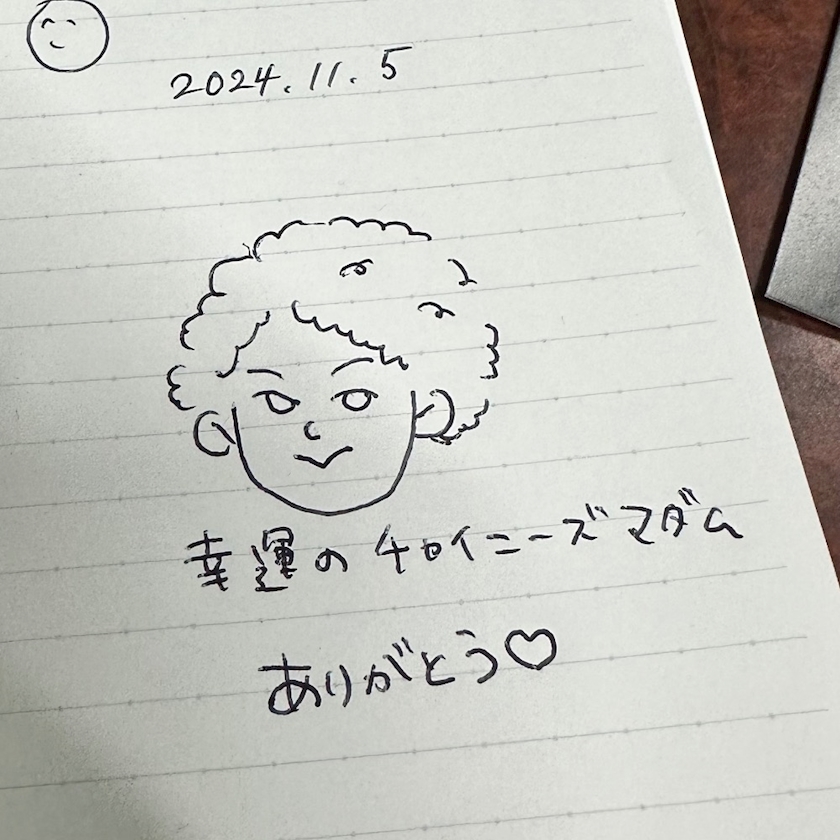 2024.11.5
幸運のチャイニーズマダム
ありがとう♡